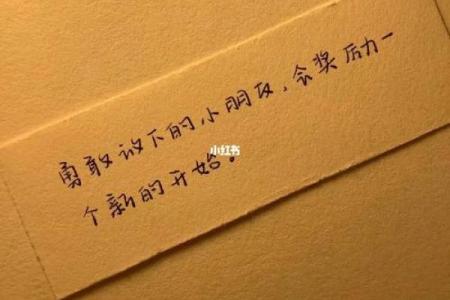 勇敢放下的小朋友，会奖励一
小红书
个新的开始。